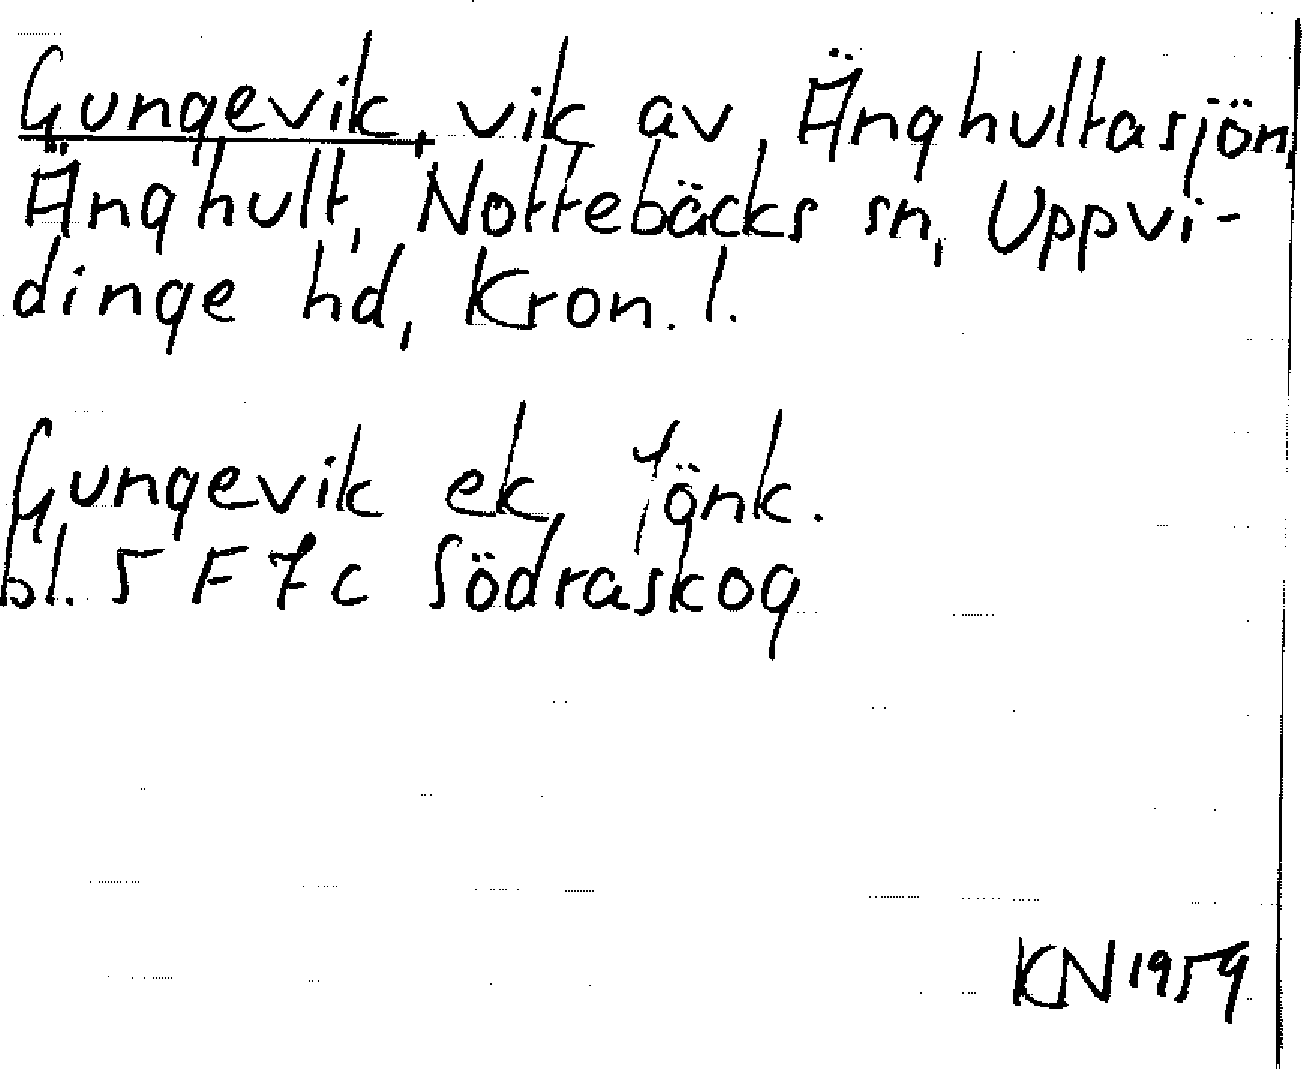 Gungevik, vik av Änghultasjön,
Änghult, Nottebäcks sn, Uppvi-
dinge hd, Kron. l.
Gungevik ek, Jönk.
bl. 5 F 7 c Södraskog
KN 1959